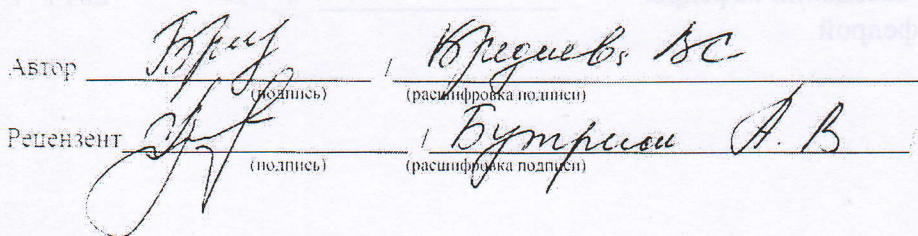 Автор / ВС
(подпись) (расшифровка подписи)
Рецензент / Бутрим А. В /
(подпись) (расшифровка подписи)